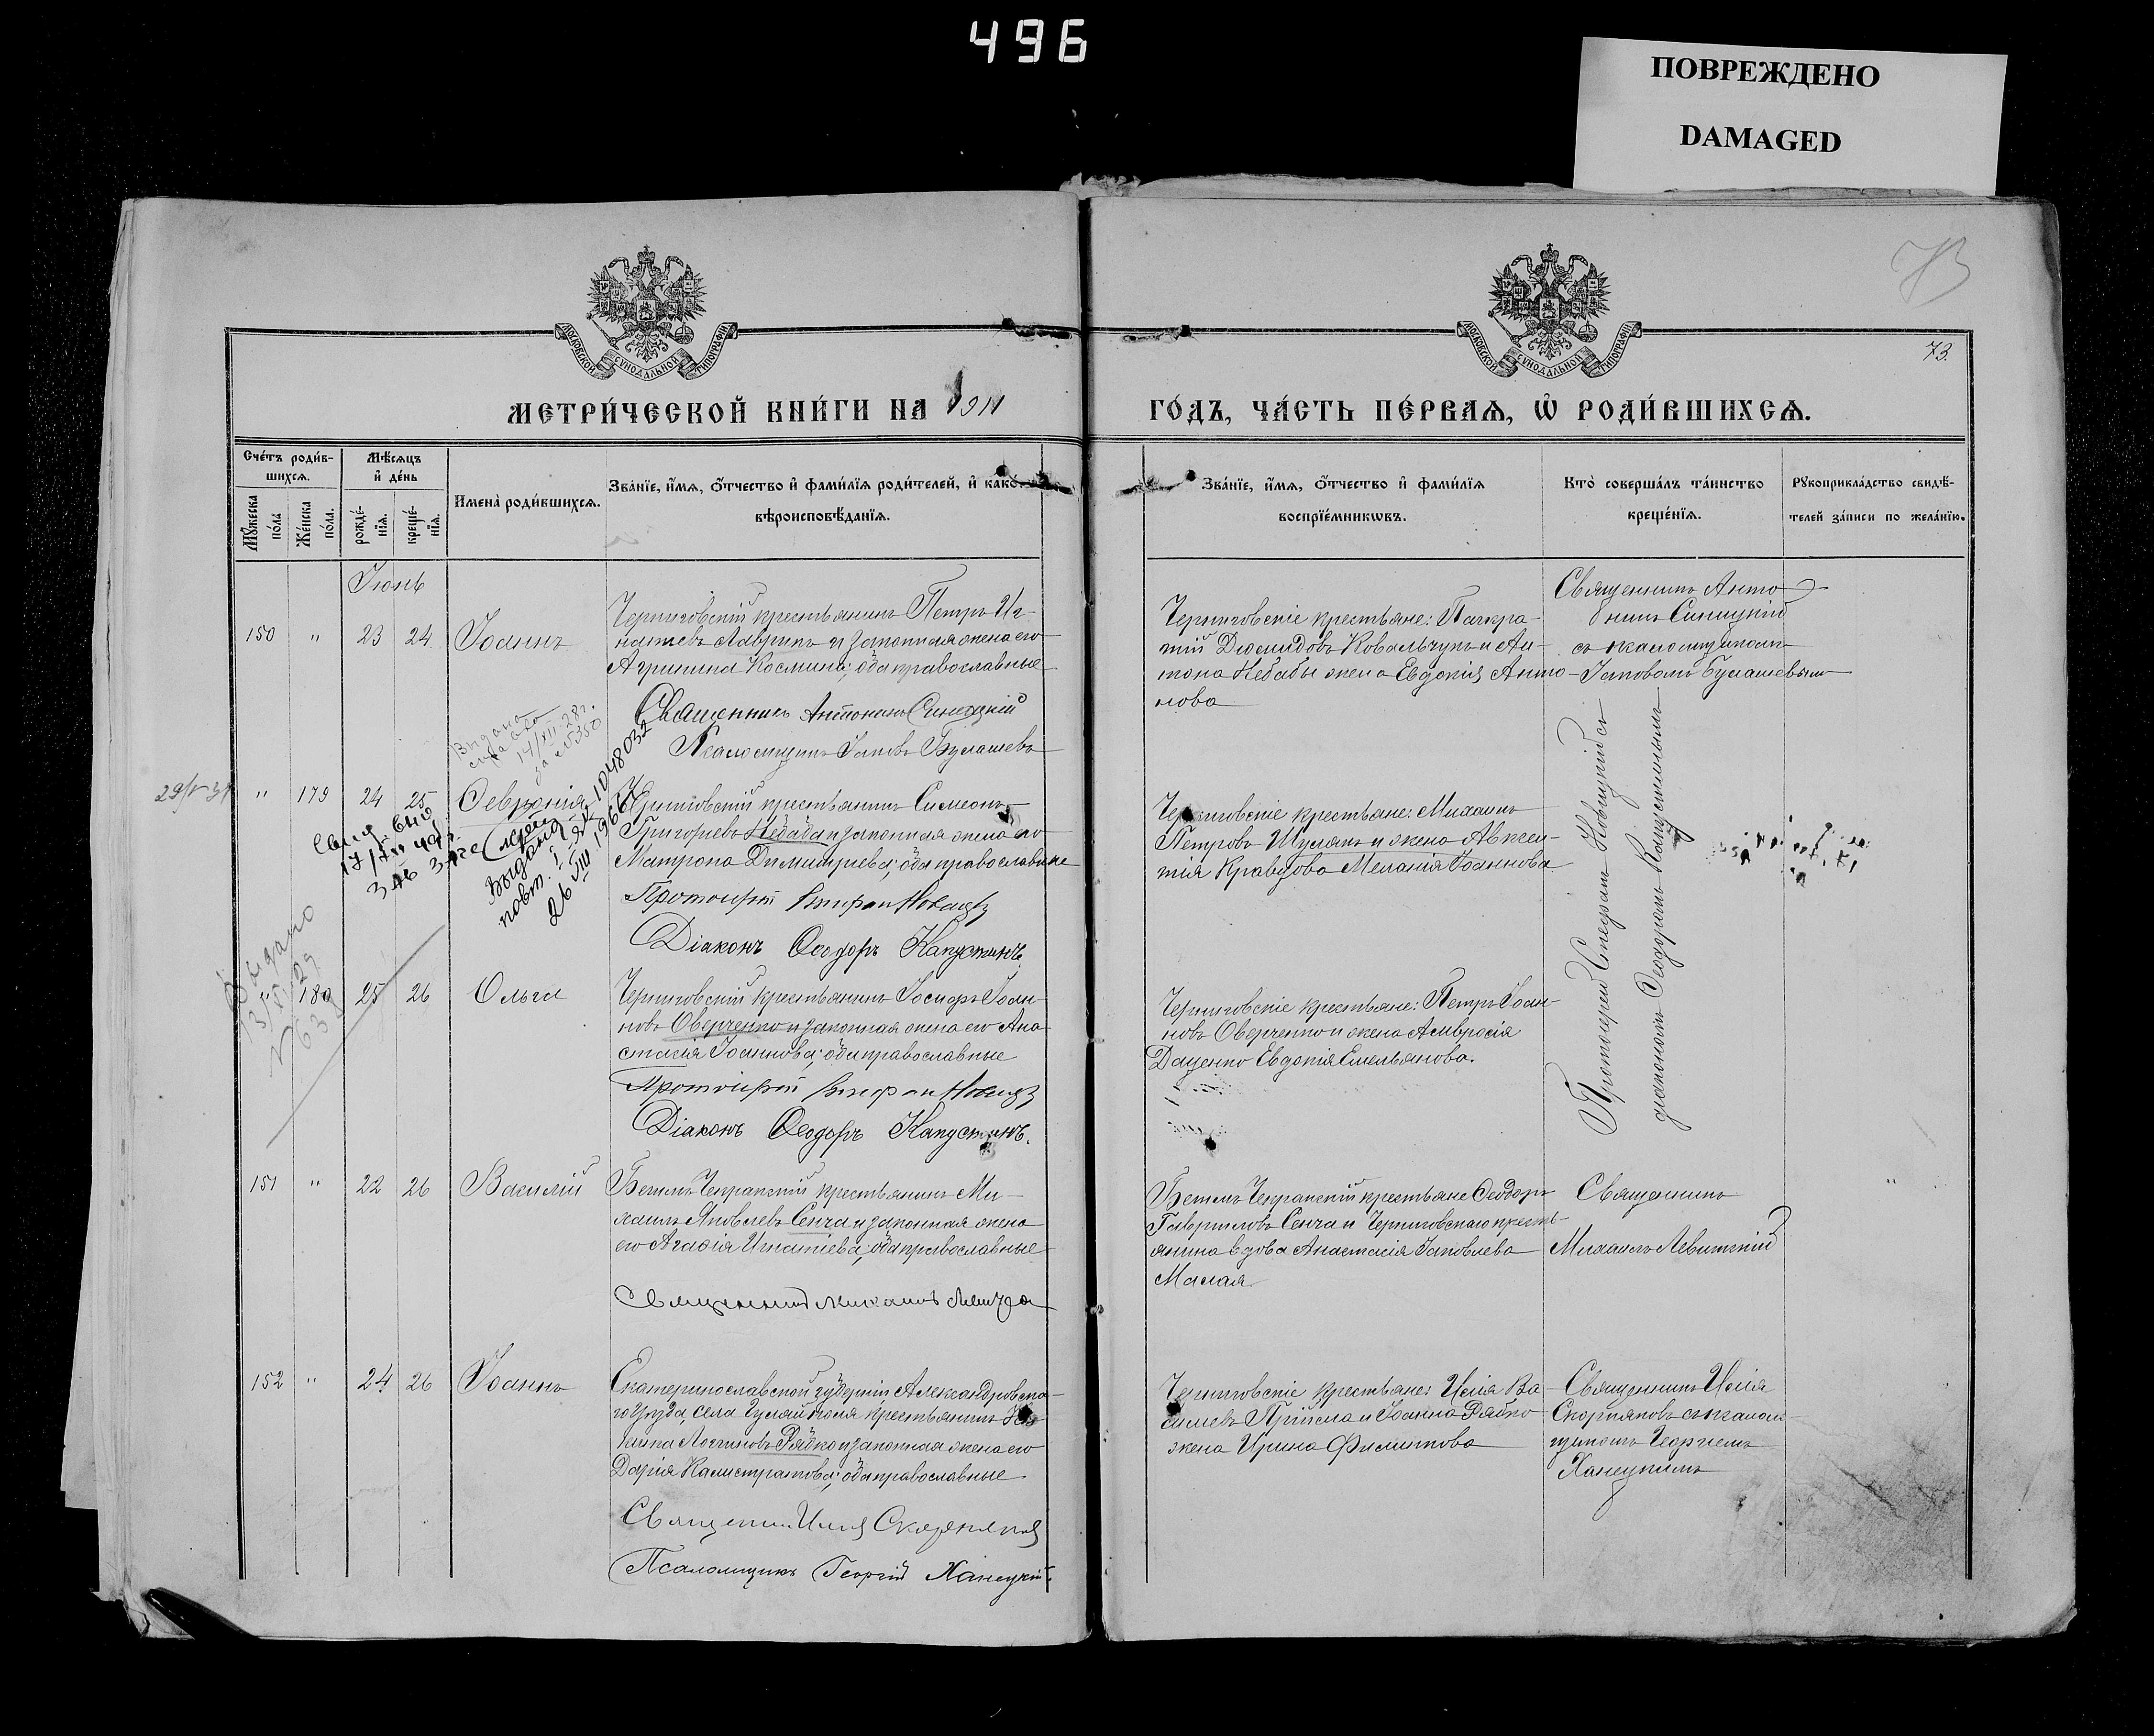 496
ПОВРЕЖДЕНО
DAMAGED
73
73.
МОСКОВСКОЙ СѴНОДАЛЬНОЙ ТИПОГРАФІИ
МОСКОВСКОЙ СѴНОДАЛЬНОЙ ТИПОГРАФІИ
МЕТРИ́ЧЕСКОЙ КНИ́ГИ НА 1911
ГО́ДЪ, ЧА́СТЬ ПЕ́РВАѦ, Ѡ҆ РОДИ́ВШИХСѦ.
Сче́тъ роди́в-
шихсѧ.
Мꙋ́жеска
по́ла
Же́нска
по́ла.
Мѣ́сѧцъ
и҆ де́нь
рожде́-
нїѧ.
креще́-
нїѧ.
Имена̀ роди́вшихсѧ.
Зва́нїе, и҆́мѧ, ѻ҆́тчество и҆ фами́лїѧ роди́телей, и҆ како́-
вѣроисповѣ́данїѧ.
Зва́нїе, и҆́мѧ, ѻ҆́тчество и҆ фами́лїѧ
воспрїе́мникѡвъ.
Кто̀ соверша́лъ та́инство
креще́нїѧ.
Рꙋкоприкла́дство свидѣ́-
телей за́писи по жела́нїю.
Іюнь
150 " 23 24 Іоаннъ
Черниговскій крестьянинъ Петръ Иг-
натіевъ Лавринъ и законная жена его
Агрипина Космина; оба православные
Священникъ Антонинъ Синицкій
Псаломщикъ Іаковъ Булашевъ
Черниговскіе крестьяне: Панкра-
тій Діомидовъ Ковальчукъ и Ан-
тона Небабы жена Евдокія Анто-
нова
Священникъ Анто
нинъ Синицкій
съ псаломщикомъ
Іаковомъ Булашевым
Выдана
14/XII-28г.
за №5350
29/V-31
" 179 24 25 Февронія
Черниговскій крестьянинъ Симеонъ
Григорьевъ Небаба и законная жена его
Матрона Димитріева; оба православные
Протоіерей Стефан Новицкій
Діаконъ Ѳеодоръ Капустинъ.
Выдано
повт.
26 VIII 1966
1048032
Черниговскіе крестьяне: Михаилъ
Петровъ Шулякъ и жена Авксен-
тія Кравцова Меланія Іоаннова
Протоіерей Стефанъ Новицкій съ
діакономъ Ѳеодоромъ Капустинымъ
Выдано
" 180 25 26 Ольга
Черниговскій крестьянинъ Іосифъ Іоан-
новъ Оверченко и законная жена его Ана-
стасія Іоаннова; оба православные
Протоіерей Стефан Новицкій
Діаконъ Ѳеодоръ Капустинъ.
Черниговскіе крестьяне: Петръ Іоан-
новъ Оверченко и жена Амвросія
Даценко Евдокія Емельянова.
151 " 22 26 Василій
Бетмъ Чекракскій крестьянинъ Ми-
хаилъ Яковлевъ Сенча и законная жена
его Агаѳія Игнатіева; оба православные
Священникъ Михаилъ Левитскій
Бетмъ Чекракскій крестьяне Ѳеодоръ
Гавриловъ Сенча и Черниговскаго кресть-
янина вдова Анастасія Іаковлева
Малая.
Священникъ
Михаилъ Левитскій
152 " 24 26 Іоаннъ
Екатеринославской губерніи, Александровска-
го уѣзда, села Гуляйполя крестьянинъ
Логгиновъ Рябко и законная жена его
Дарія Калистратова; оба православные.
Священникъ Илія Скорняковъ
Псаломщикъ Георгій Ханецкій.
Черниговскіе крестьяне: Илія Ва-
силіевъ Прійма и Іоанна Рябко
жена Ирина Филиппова
Священникъ Илія
Скорняковъ съ псалом-
щикомъ Георгіемъ
Ханецкимъ